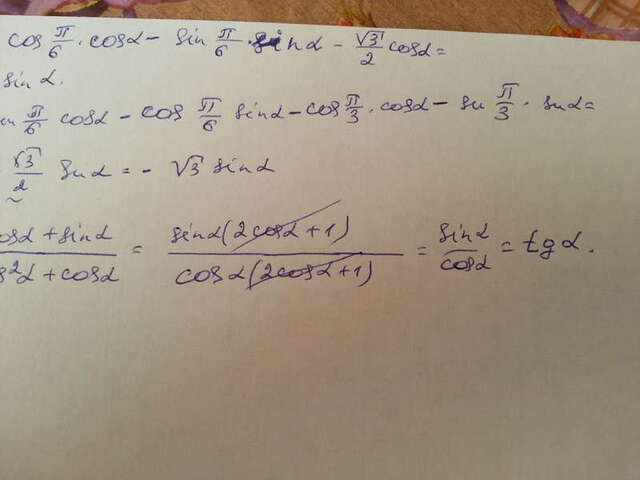 cos π/6 · cosα - sin π/6 · sinα - √3/2 cosα =
sinα.
π/6 cosα - cos π/6 sinα - cos π/3 · cosα - sin π/3 · sinα =
√3/2 sinα = - √3 sinα
cosα + sinα / s²α + cosα = sinα(2cosα + 1) / cosα(2cosα + 1) = sinα / cosα = tgα.